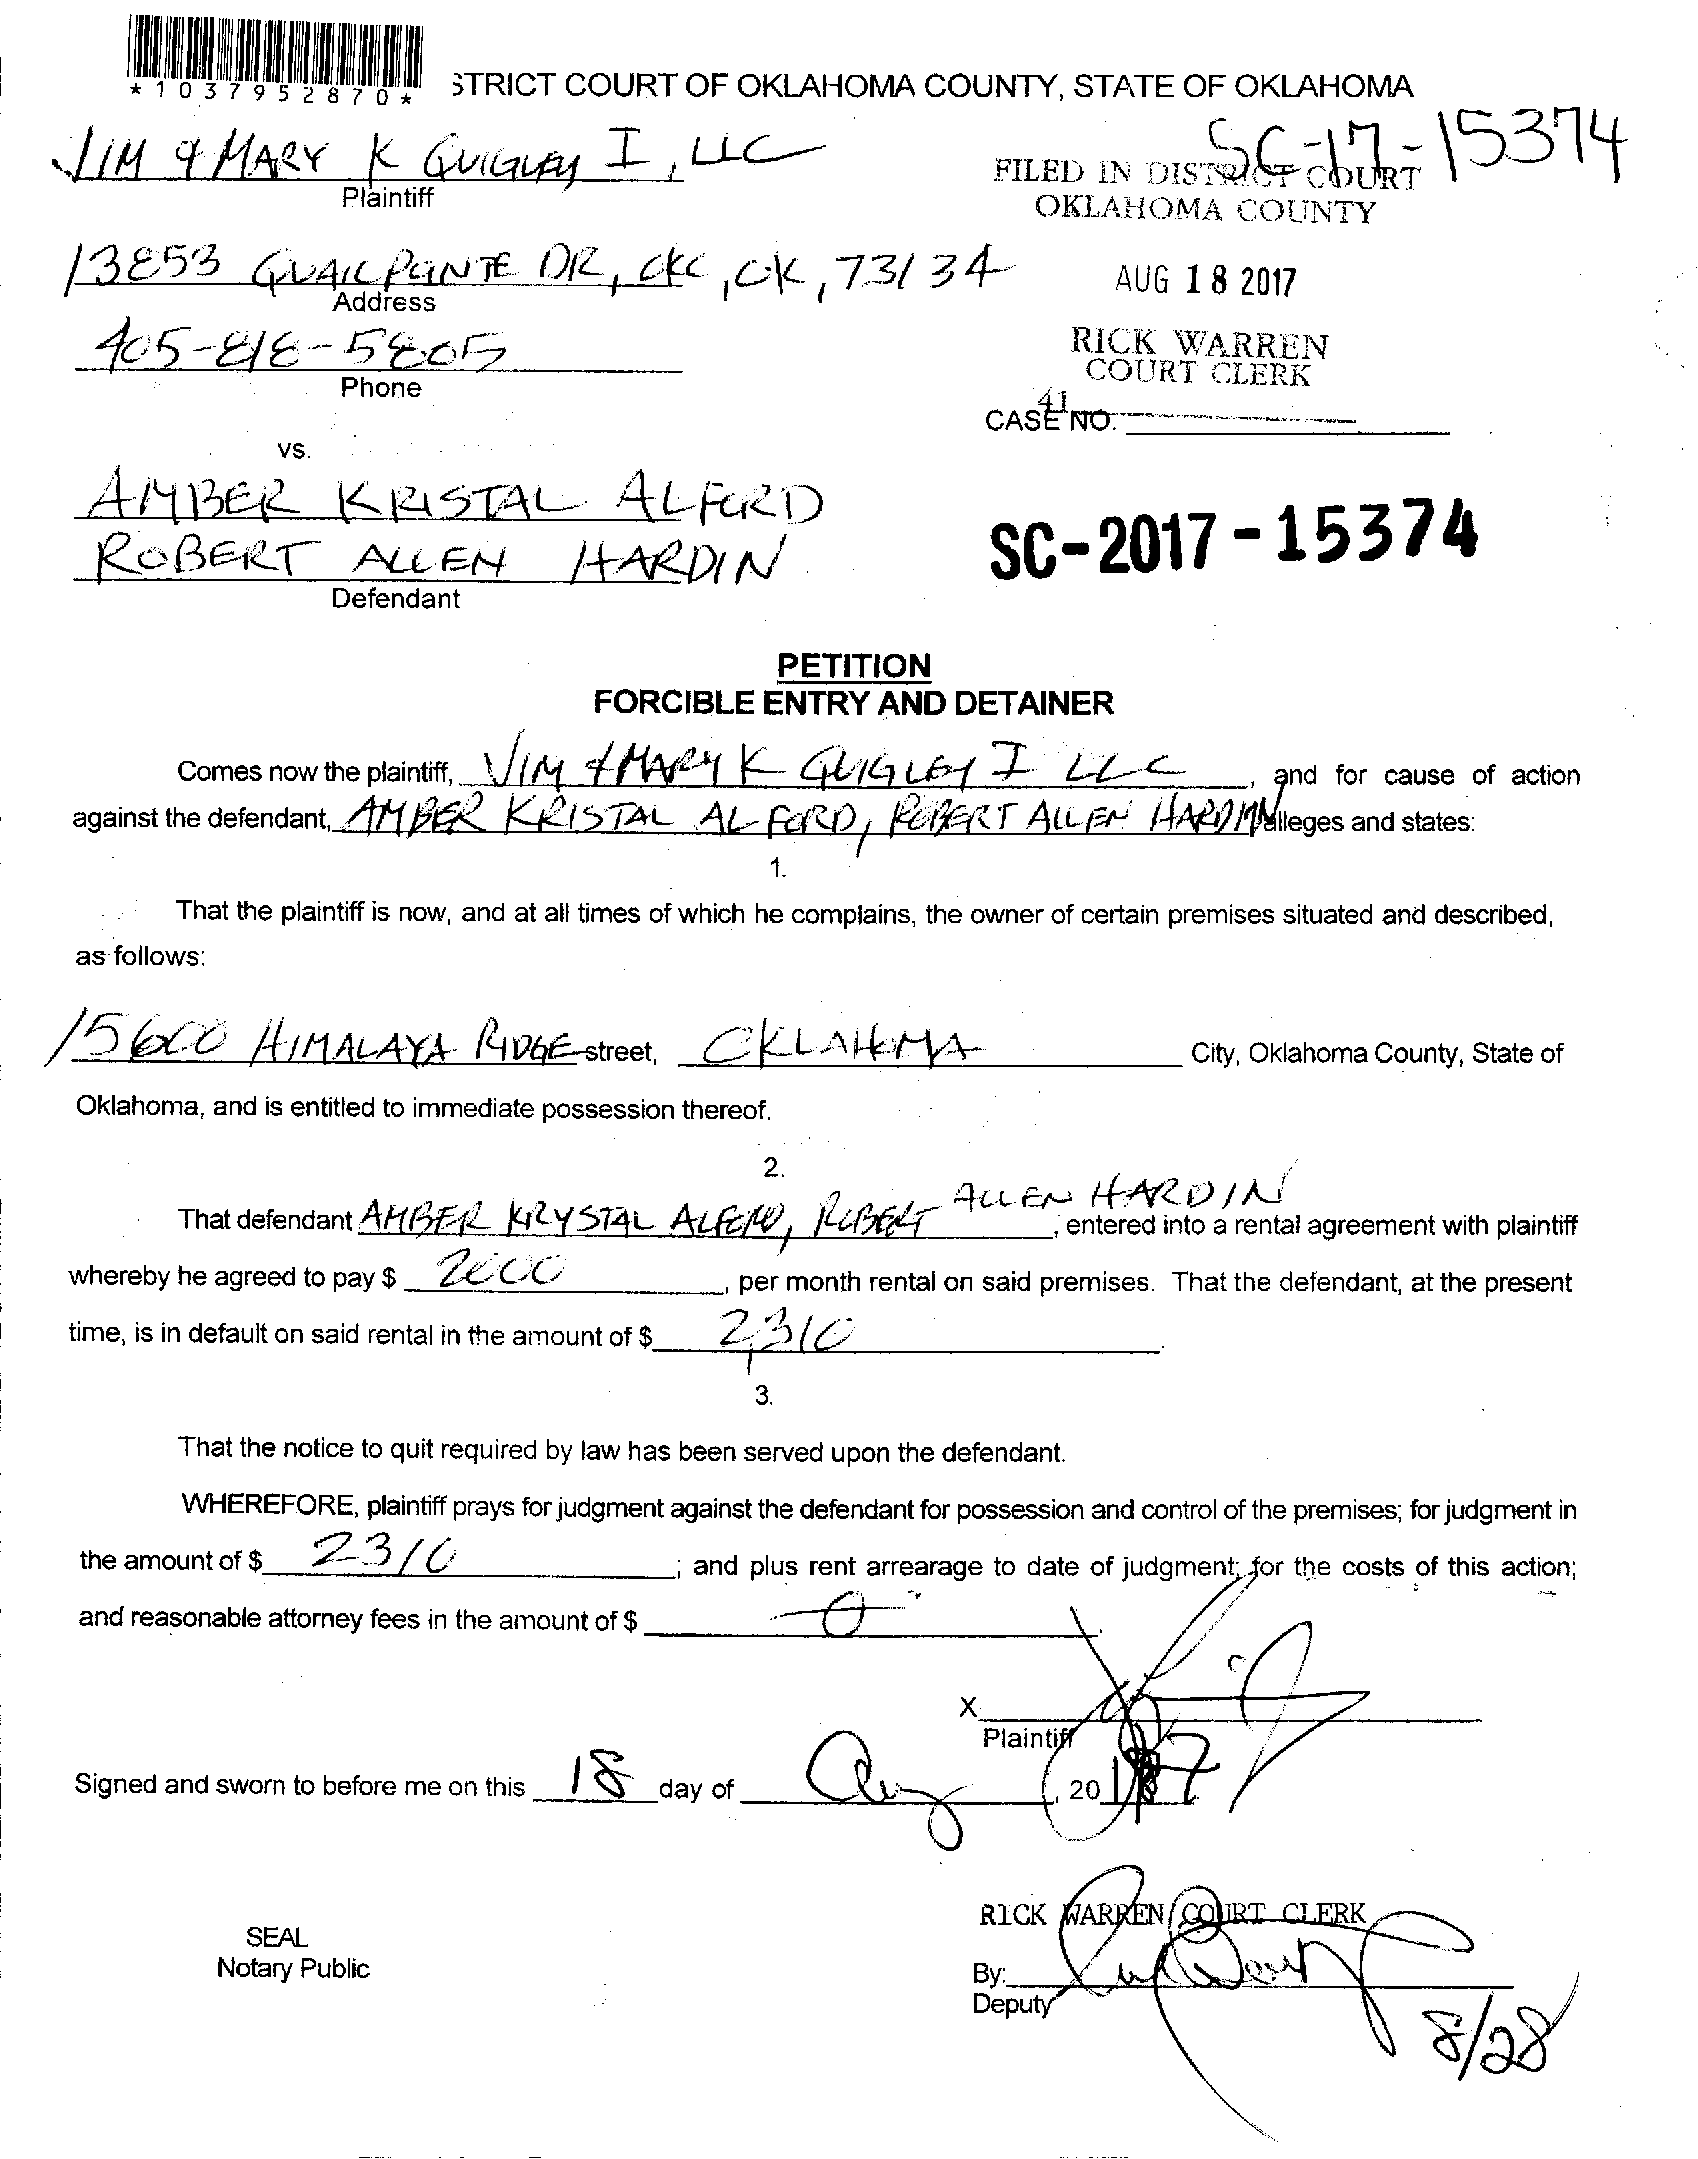 *1037952870*
STRICT COURT OF OKLAHOMA COUNTY, STATE OF OKLAHOMA
SC-17-15374
JIM & MARY K QUIGLEY I, LLC
Plaintiff
FILED IN DISTRICT COURT
OKLAHOMA COUNTY
13853 QUAILPOINTE DR, OKC, OK, 73134
Address
AUG 18 2017
405-818-5805
Phone
RICK WARREN
COURT CLERK
41
CASE NO.
vs.
AMBER KRISTAL ALFORD
ROBERT ALLEN HARDIN
Defendant
SC-2017-15374
PETITION
FORCIBLE ENTRY AND DETAINER
Comes now the plaintiff, JIM & MARY K QUIGLEY I LLC, and for cause of action
against the defendant, AMBER KRISTAL ALFORD, ROBERT ALLEN HARDIN alleges and states:
1.
That the plaintiff is now, and at all times of which he complains, the owner of certain premises situated and described,
as follows:
15600 HIMALAYA RIDGE street, OKLAHOMA City, Oklahoma County, State of
Oklahoma, and is entitled to immediate possession thereof.
2.
That defendant AMBER KRYSTAL ALFORD, ROBERT ALLEN HARDIN, entered into a rental agreement with plaintiff
whereby he agreed to pay $ 2000, per month rental on said premises. That the defendant, at the present
time, is in default on said rental in the amount of $ 2,310.
3.
That the notice to quit required by law has been served upon the defendant.
WHEREFORE, plaintiff prays for judgment against the defendant for possession and control of the premises; for judgment in
the amount of $ 2310; and plus rent arrearage to date of judgment; for the costs of this action;
and reasonable attorney fees in the amount of $ 0.
X
Plaintiff
Signed and sworn to before me on this 18 day of Aug, 2017
RICK WARREN COURT CLERK
SEAL
Notary Public
By:
Deputy
8/28